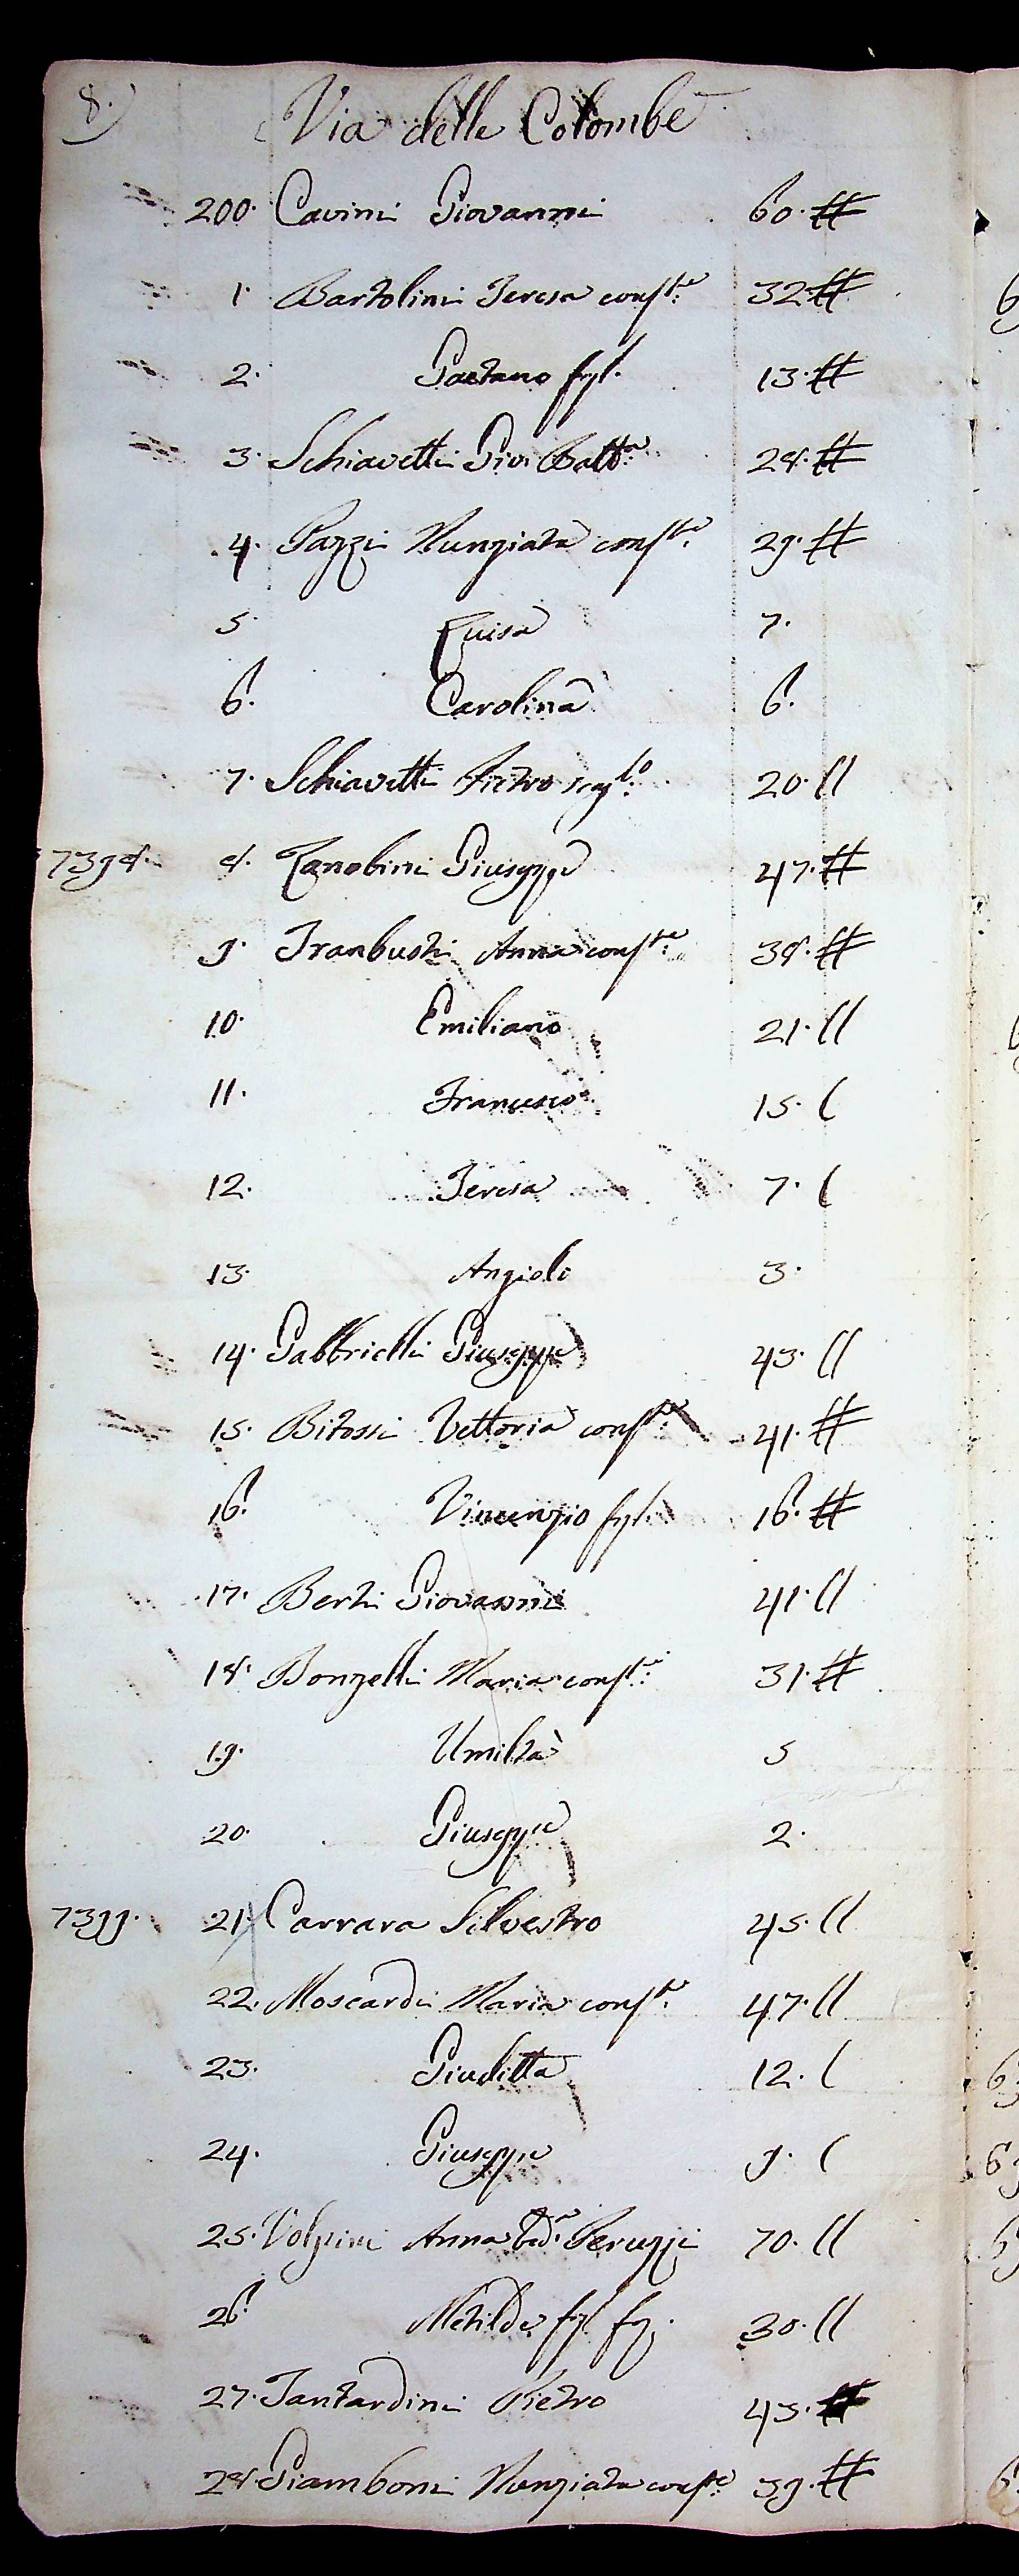 8.) Via delle Colombe
200. Cavini Giovanni 60. #
1. Bartolini Teresa conste. 32. #
2. Gaetano figl. 13. #
3. Schiavetti Gio: Batta. 28. #
4. Pazzi Nunziata conste. 29. #
5. Luisa 7.
6. Carolina 6.
7. Schiavetti Pietro scaplo. 20. //
7398. 8. Zanobini Giuseppe 47. #
9. Trambusti Anna conste. 38. #
10. Emiliano 21. //
11. Francesco 15. /
12. Teresa 7. /
13. Angiolo 3.
14. Gabbrielli Giuseppe 43. //
15. Bitossi Vettoria conste. 41. #
16. Vincenzio figl. 16. #
17. Berti Giovanni 41. //
18. Bonzelli Maria conste. 31. #
19. Umiltà 5
20. Giuseppe 2.
7399. 21. Carrara Silvestro 45. //
22. Moscardi Maria conste. 47. //
23. Giuditta 12. /
24. Giuseppe 9. /
25. Volpini Anna veda. Peruzzi 70. //
26. Metilde figl. 30. //
27. Tantardini Pietro 45. #
28. Giamboni Nunziata conste. 39. #